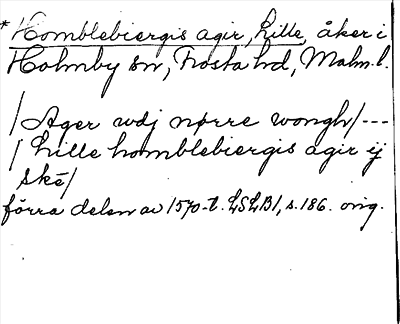 *Homblebiergis agir, Lille, åker i
Holmby sn, Frosta hd, Malm. l.
/Ager wdj nørre wongh/---
/Lille homblebiergis agir ij
skē/
förra delen av 1570-t. LSLB1, s. 186. orig.